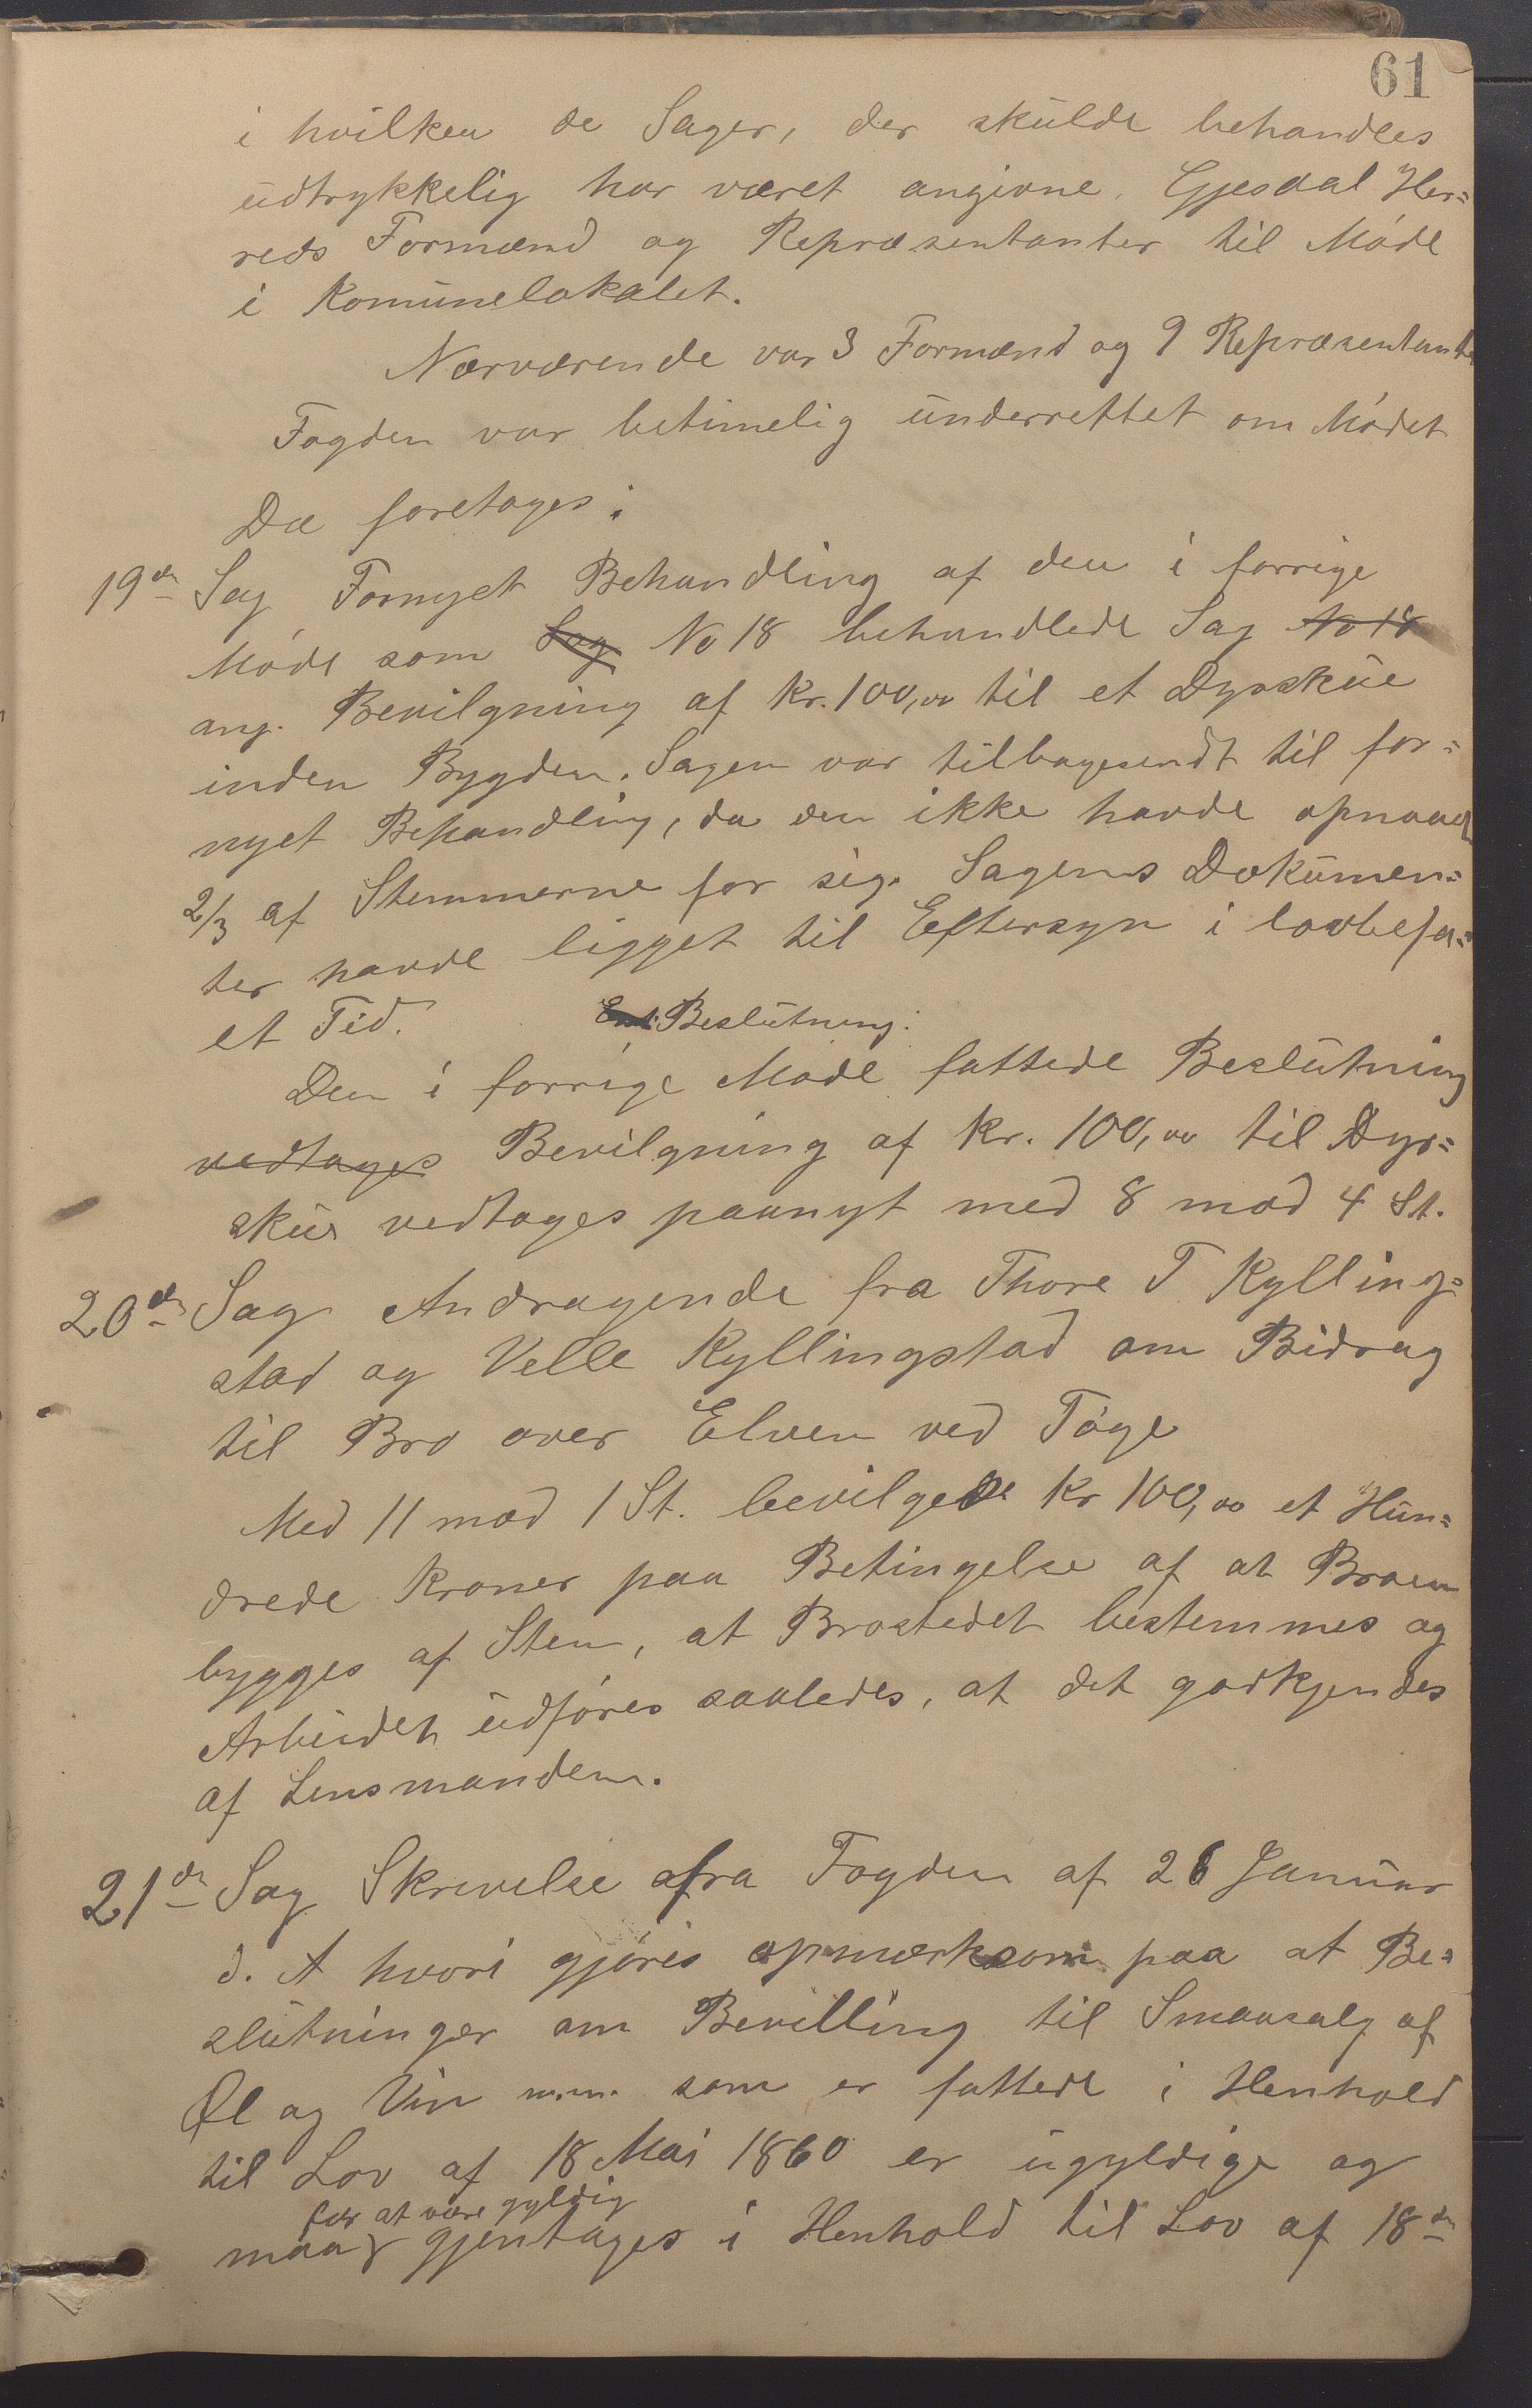 61
i hvilken de Sager, der skulde behandles
udtrykkelig har været angivne, Gjesdal Her=
reds Formænd og Repræsentanter til Møde
i Komunelokalet.
Nærværende var 3 Formænd og 9 Repræsentanter
Fogden var betimelig underrettet om Mødet
Da foretoges:
19de Sag Fornyet Behandling af den i forrige
Møde som Sag No 18 behandlede Sag No 18
ang. Bevilgning af Kr. 100,00 til et Dyrskue
inden Bygden. Sagen var tilbagesendt til for=
nyet Behandling, da den ikke havde opnaaet
2/3 af Stemmerne for sig. Sagens Dokumen=
ter havde ligget til Eftersyn i lovbefa=
et Tid. Ent. Beslutning:
Den i forrige Møde fattede Beslutning
vedtages Bevilgning af Kr. 100,00 til Dyr=
skue vedtages paanyt med 8 mod 4 St.
20de Sag Andragende fra Thore T Kylling=
stad og Velle Kyllingstad om Bidrag
til Bro over Elven ved Tøge
Med 11 mod 1 St. bevilgede Kr 100,00 et Hun=
drede Kroner paa Betingelse af at Broen
bygges af Sten, at Brostedet bestemmes og
Arbeidet udføres saaledes, at det godkjendes
af Lensmanden.
21de Sag Skrivelse afra Fogden af 26 Januar
d. A hvori gjøres opmærksom paa at Be=
slutninger om Bevilling til Smaasalg af
Øl og Vin m.m. som er fattede i Henhold
til Lov af 18 Mai 1860 er ugyldige og
for at være gyldig
maa gjentages i Henhold til Lov af 18de